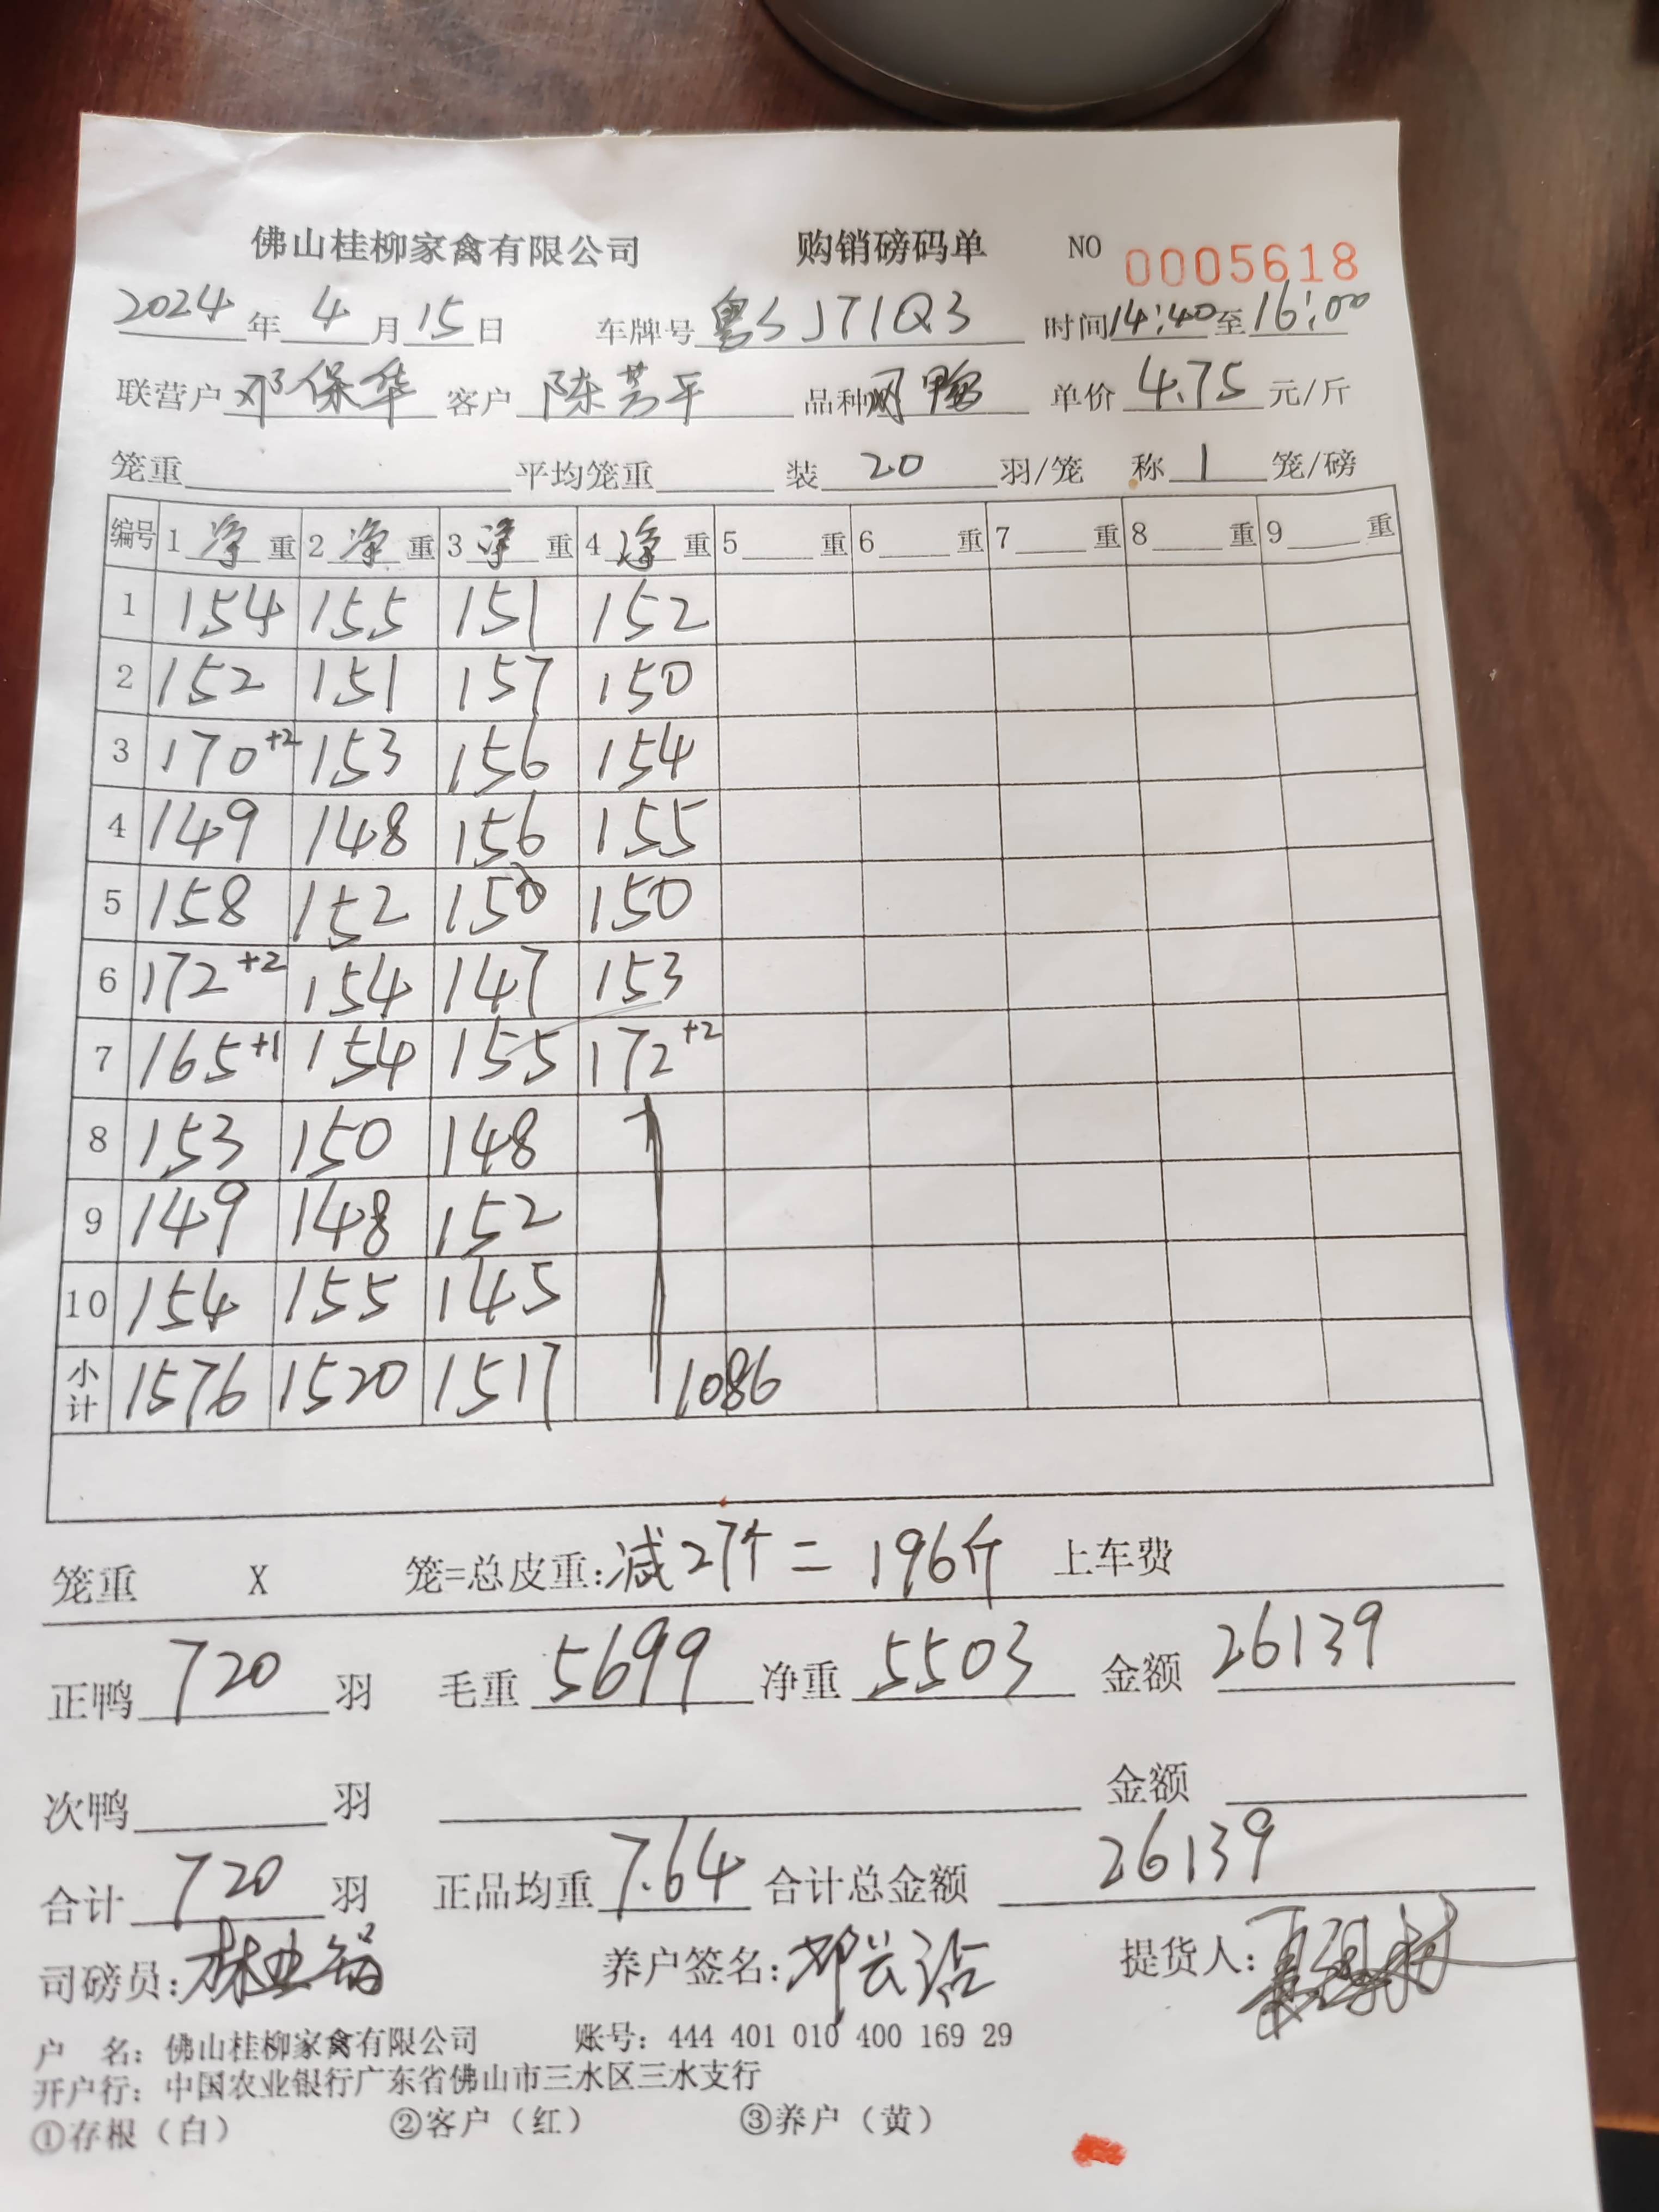 佛山桂柳家禽有限公司 购销磅码单 NO 0005618
2024年4月15日 车牌号 粤SJT1Q3 时间14:40至16:00
联营户 邓保华 客户 陈芳平 品种 鸭 单价 4.75 元/斤
笼重 平均笼重 装 20 羽/笼 称 1 笼/磅
编号 1 净 重 2 净 重 3 净 重 4 净 重 5 重 6 重 7 重 8 重 9 重
1 154 155 151 152
2 152 151 157 150
3 170+2 153 156 154
4 149 148 156 155
5 158 152 150 150
6 172+2 154 147 153
7 165+1 154 155 172+2
8 153 150 148
9 149 148 152
10 154 155 145
小计 1576 1520 1517 1086
笼重 X 笼=总皮重: 减27个=196斤 上车费
正鸭 720 羽 毛重 5699 净重 5503 金额 26139
次鸭 羽 金额
合计 720 羽 正品均重 7.64 合计总金额 26139
司磅员: 养户签名: 提货人:
户 名: 佛山桂柳家禽有限公司 账号: 444 401 010 400 169 29
开户行: 中国农业银行广东省佛山市三水区三水支行
①存根（白） ②客户（红） ③养户（黄）